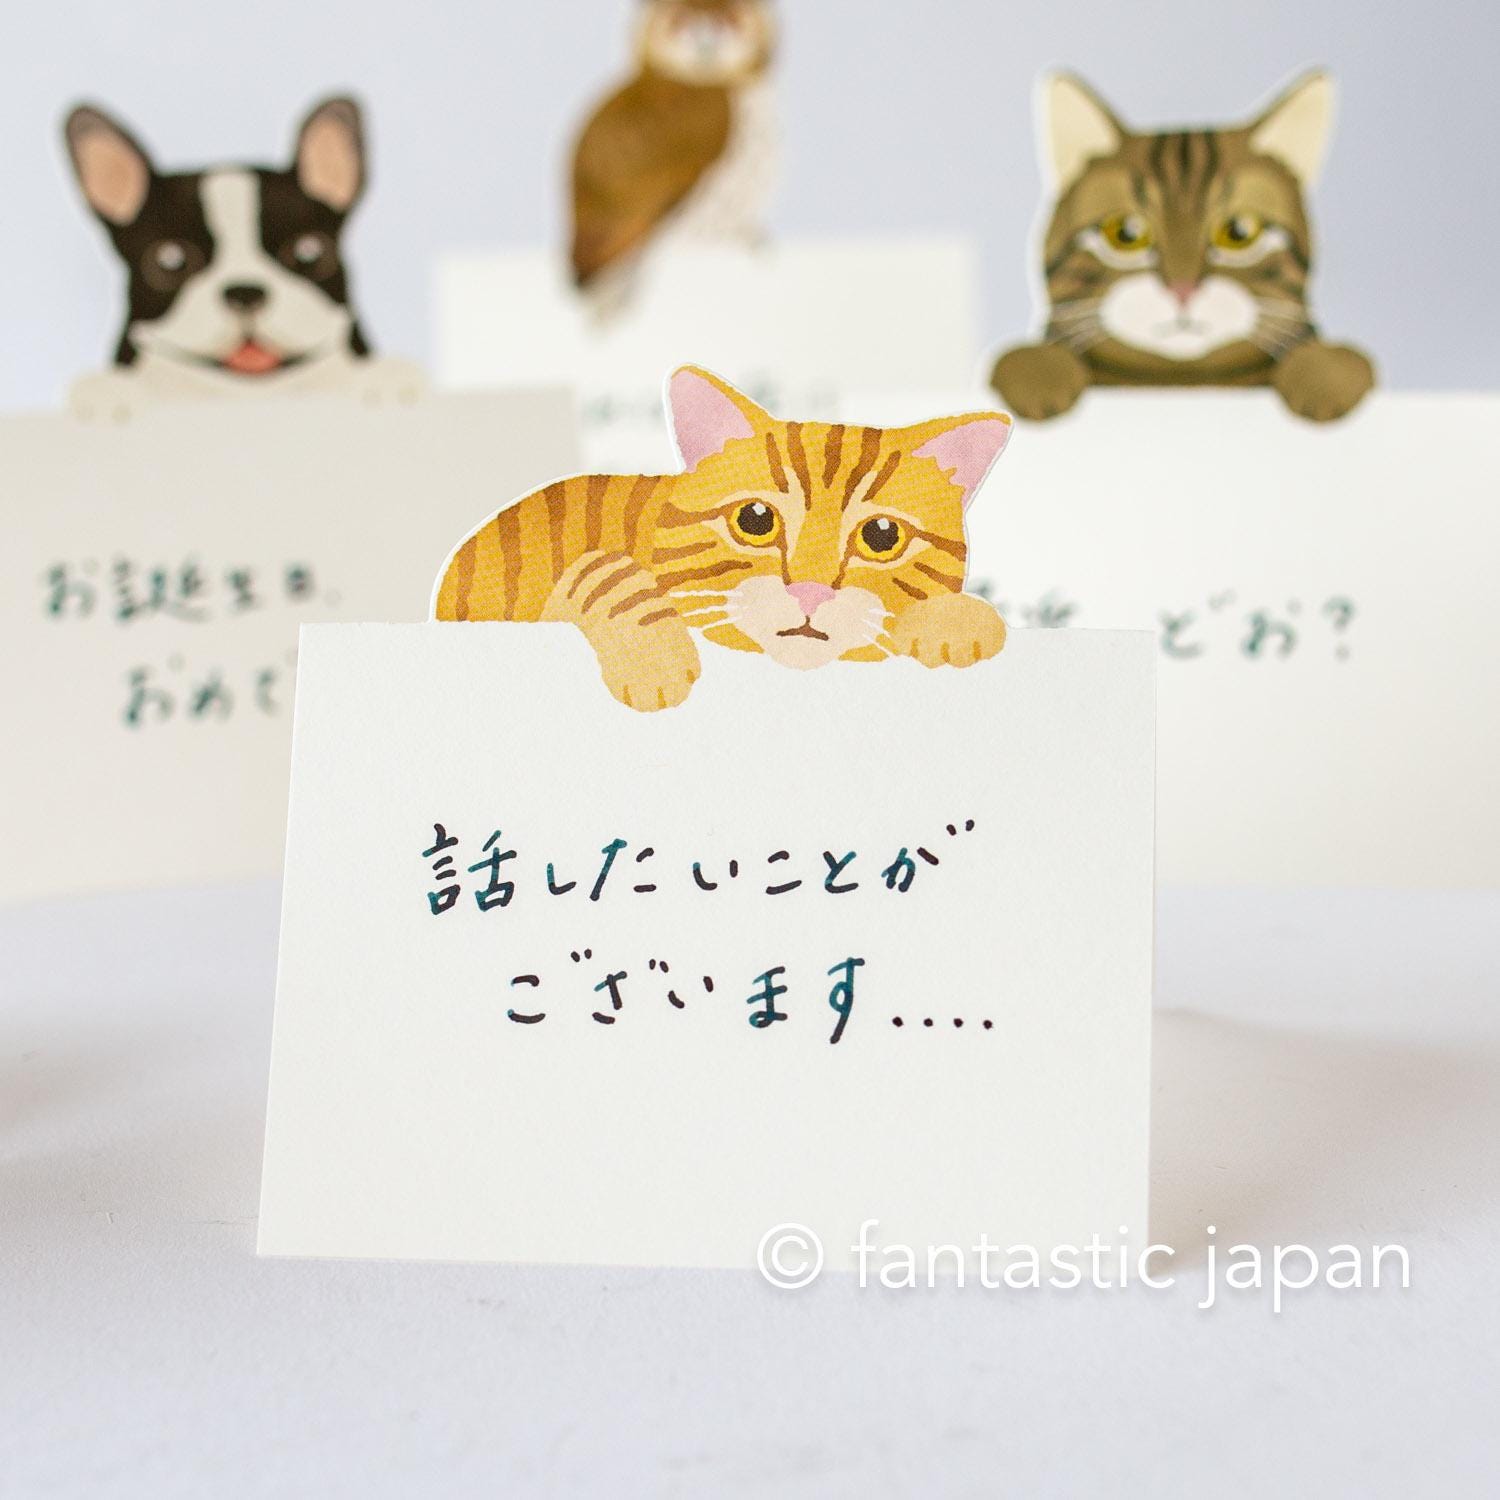 お誕生日、
おめで
どお？
話したいことが
ございます....
© fantastic japan